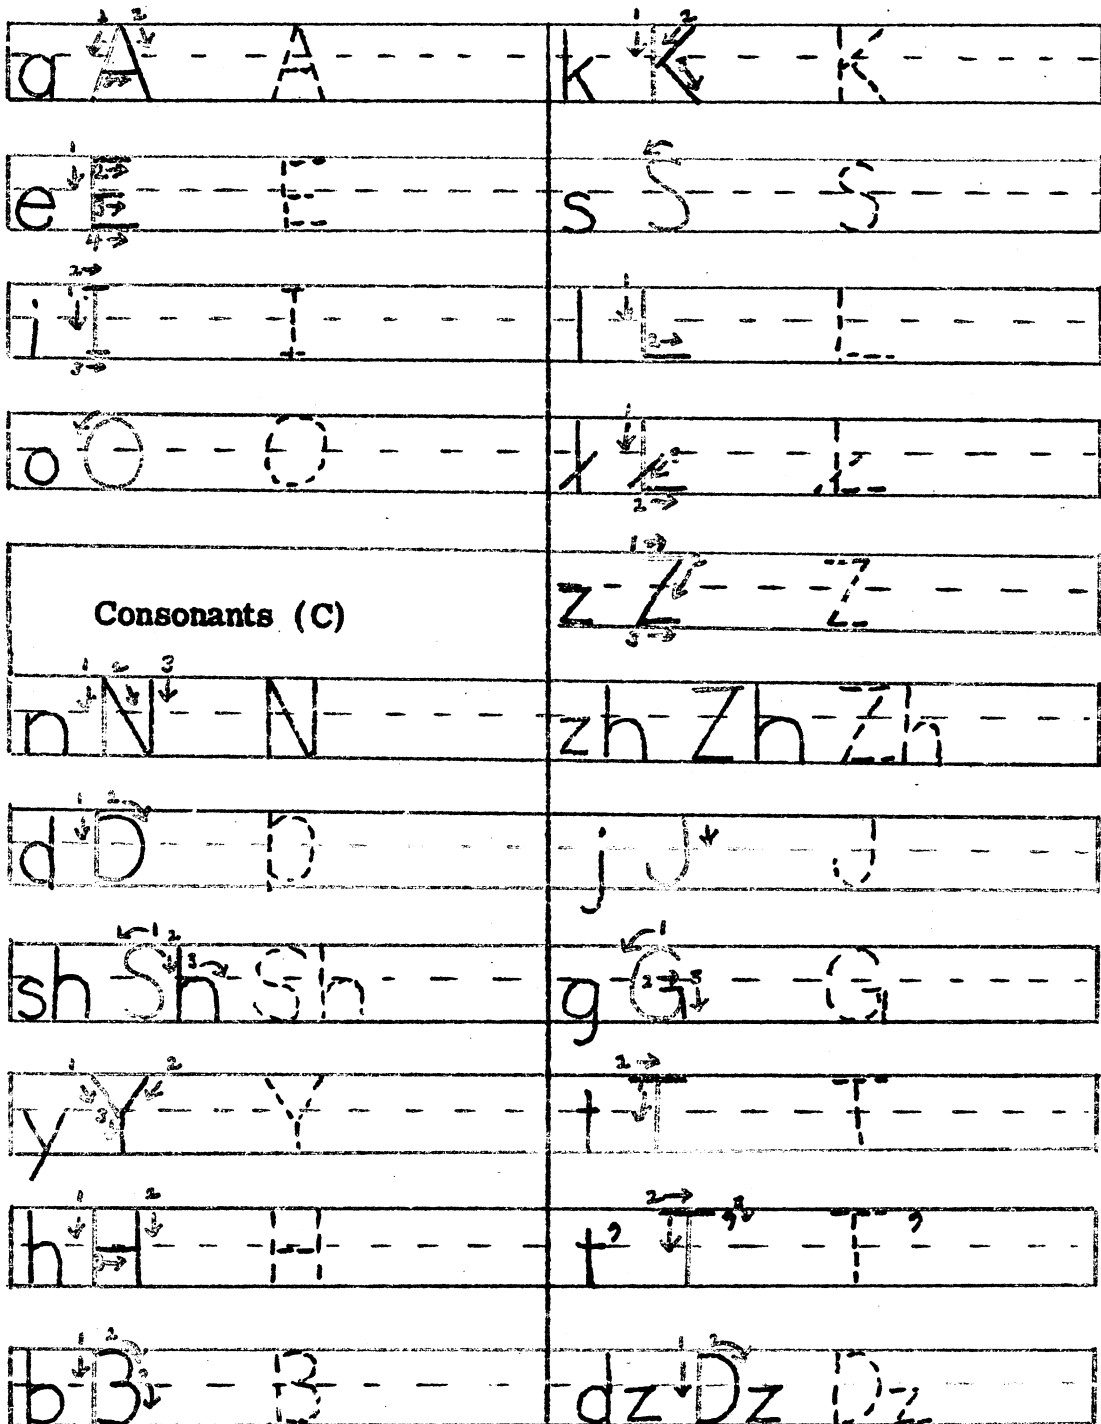 a A A
e E E
i I I
o O O
Consonants (C)
n N N
d D D
sh Sh Sh
y Y Y
h H H
b B B
k K K
s S S
l L L
ł Ł Ł
z Z Z
zh Zh Zh
j J J
g G G
t T T
t’ T’ T’
dz Dz Dz